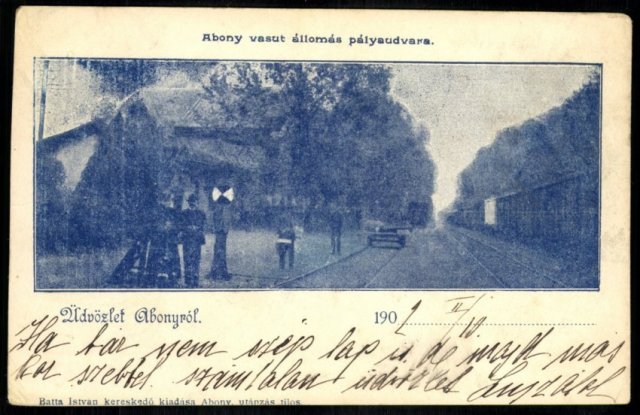 Abony vasut állomás pályaudvara.
Üdvözlet Abonyról.
1902 II/10
Ha bár nem szép lap is de majd más
kor szebbel számtalan üdvözlet
Batta István kereskedő kiadása Abony, utánzás tilos.